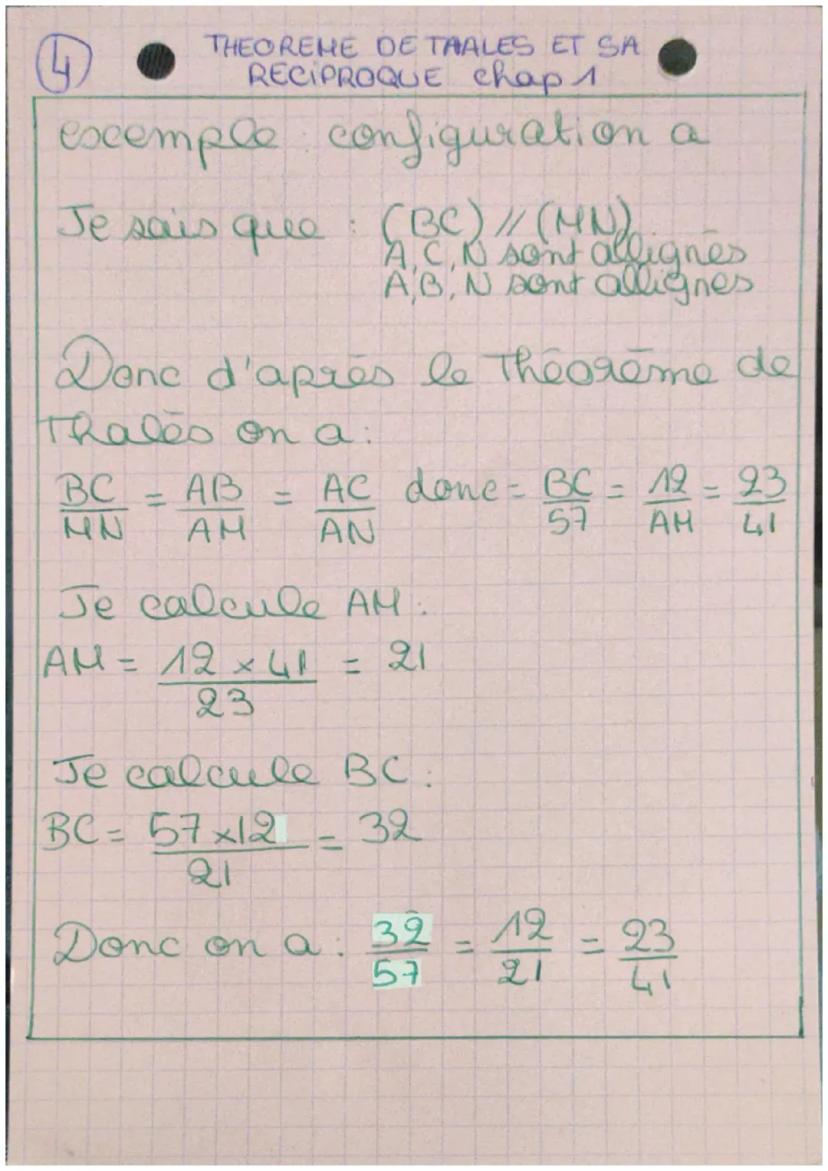 4
THEOREME DE TAALES ET SA
RECIPROQUE chap 1
escemple : configuration a
Je sais que : (BC) // (MN)
A, C, N sont allignés
A, B, N sont allignés
Donc d'après le Théorème de
Thalès on a :
BC/MN = AB/AM = AC/AN donc = BC/57 = 12/AM = 23/41
Je calcule AM :
AM = 12 × 41 / 23 = 21
Je calcule BC :
BC = 57 × 12 / 21 = 32
Donc on a : 32/57 = 12/21 = 23/41